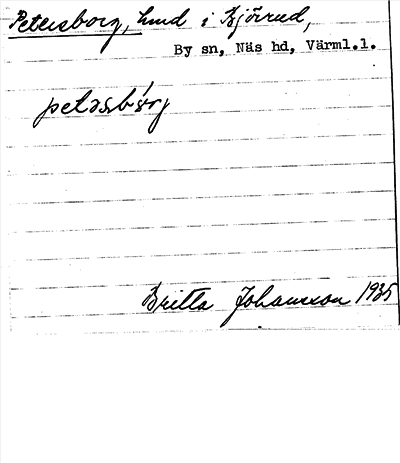 Petersborg, hmd i Björrud,
By sn, Näs hd, Värml.l.
petasbórj
Britta Johansson 1935